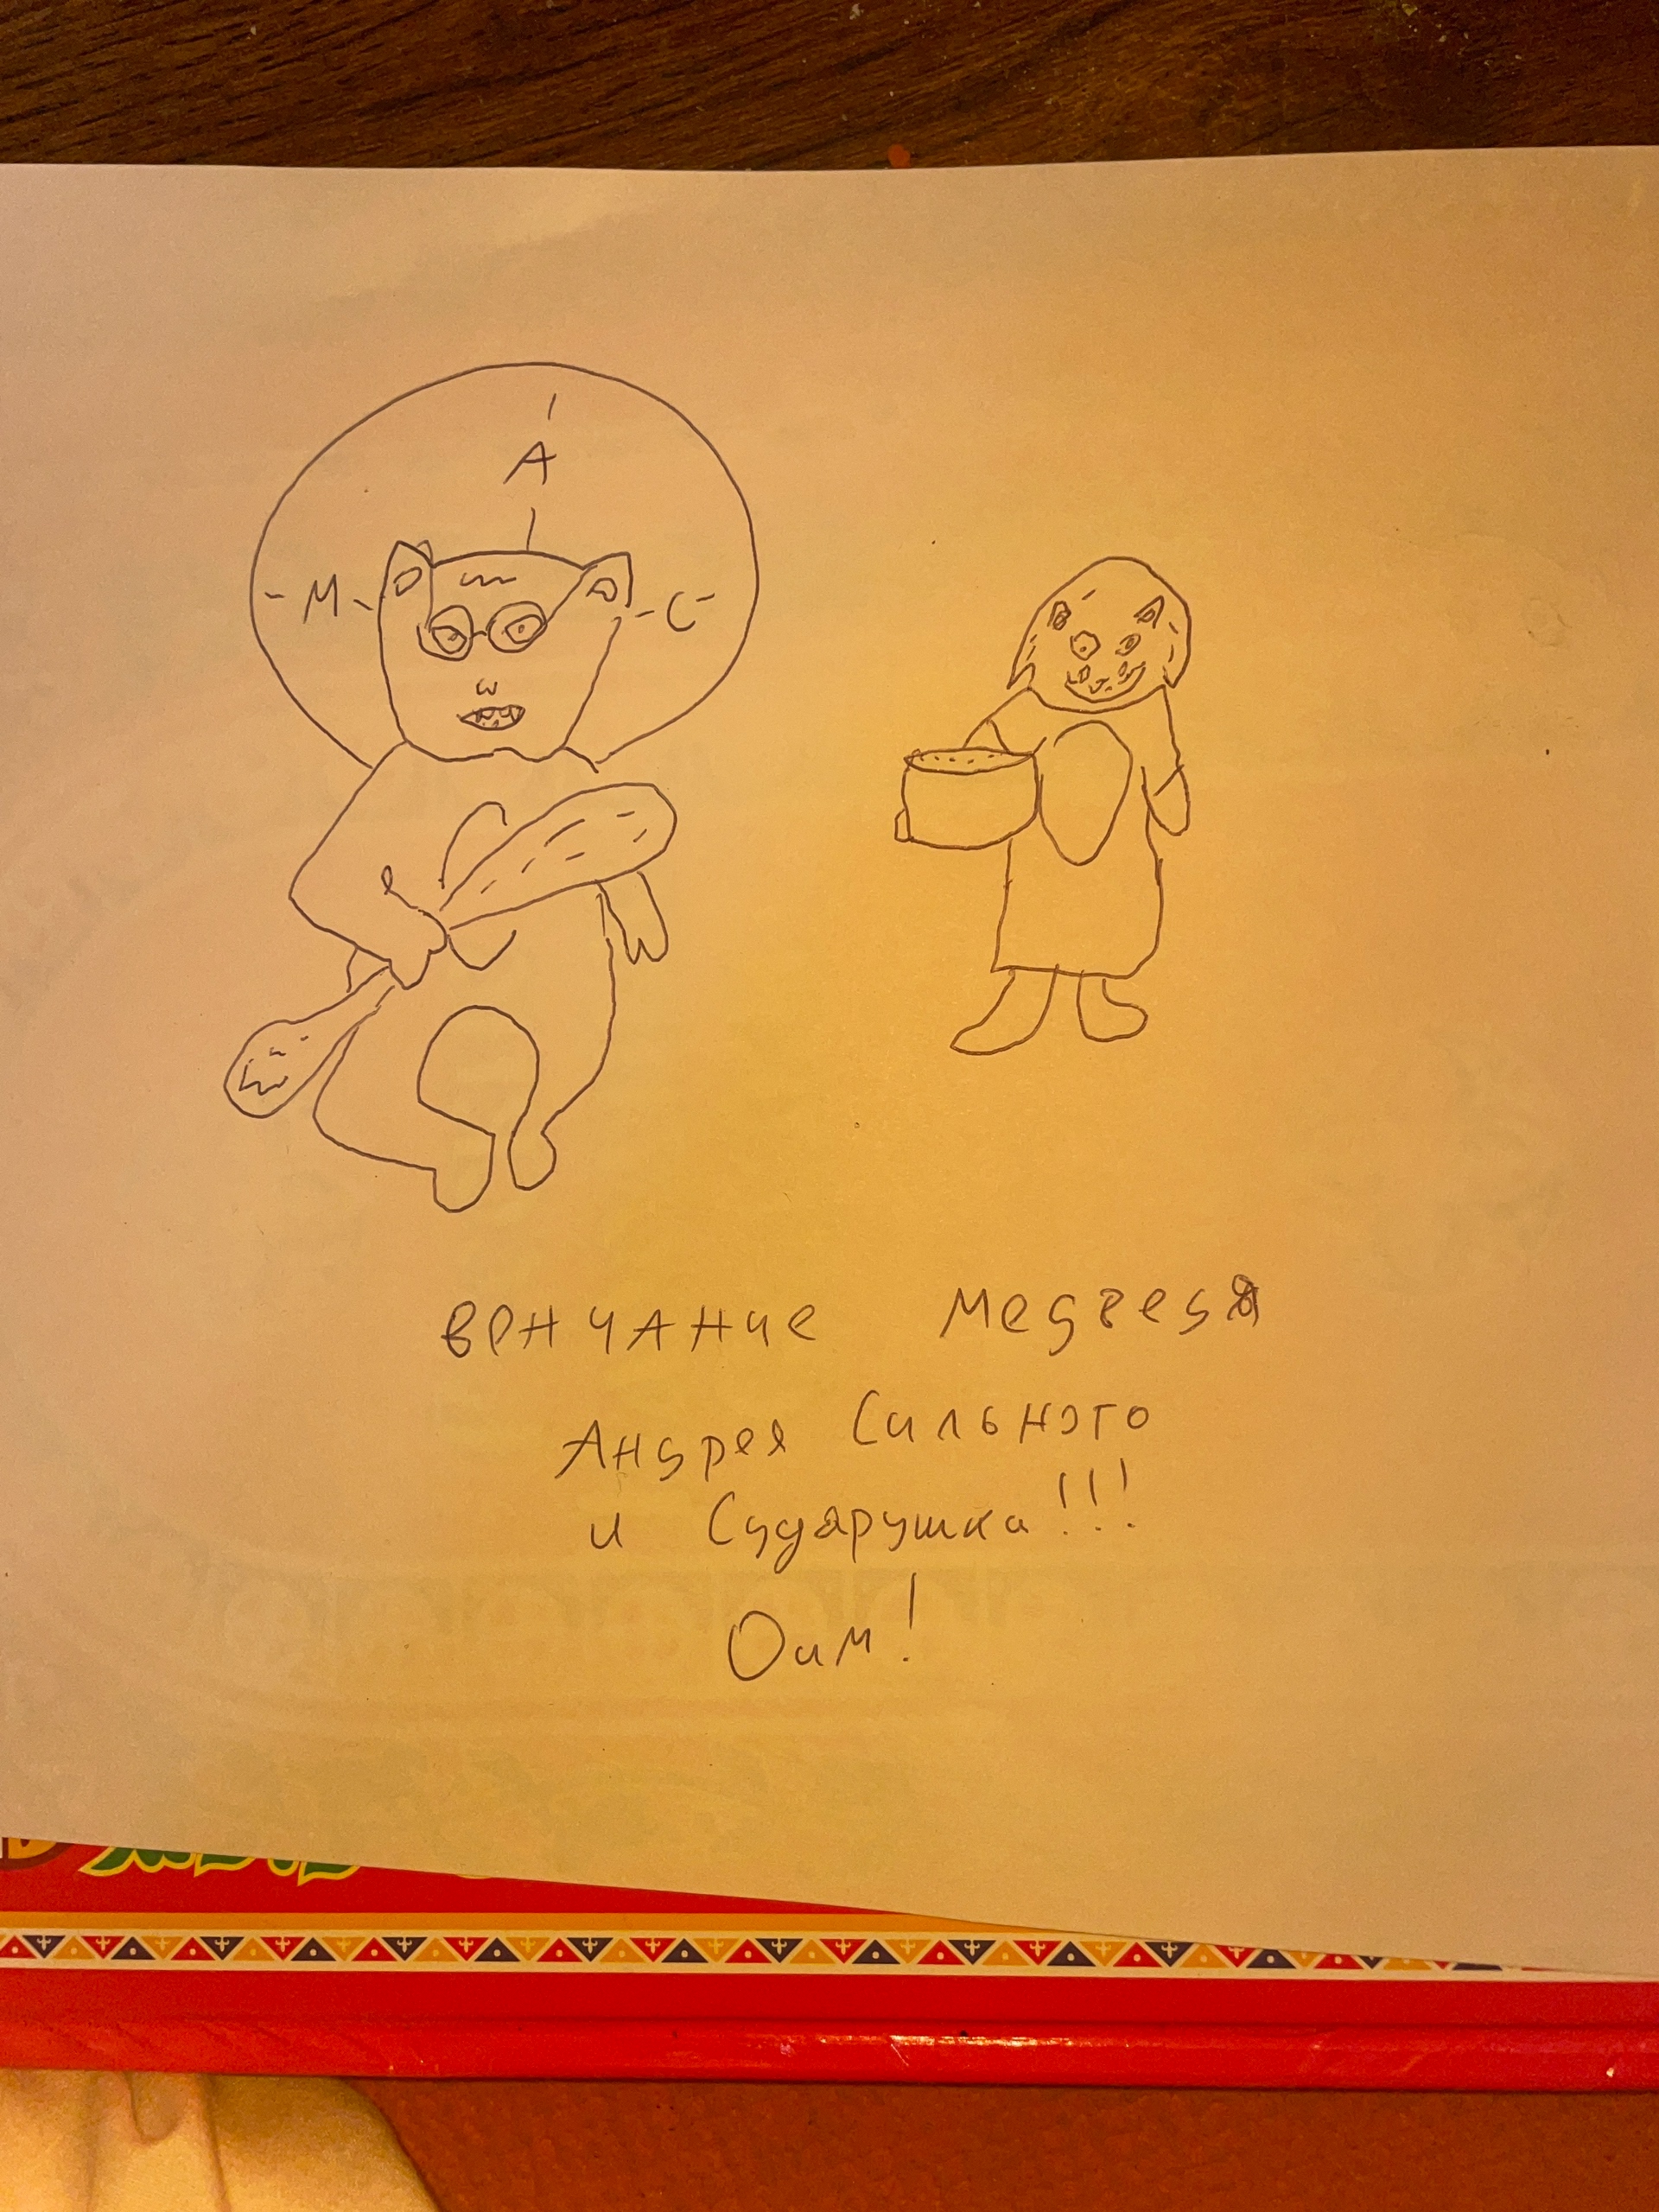 А
-М- -С-
венчание медведя
Андрея Сильного
и Сударушка!!!
Оим!